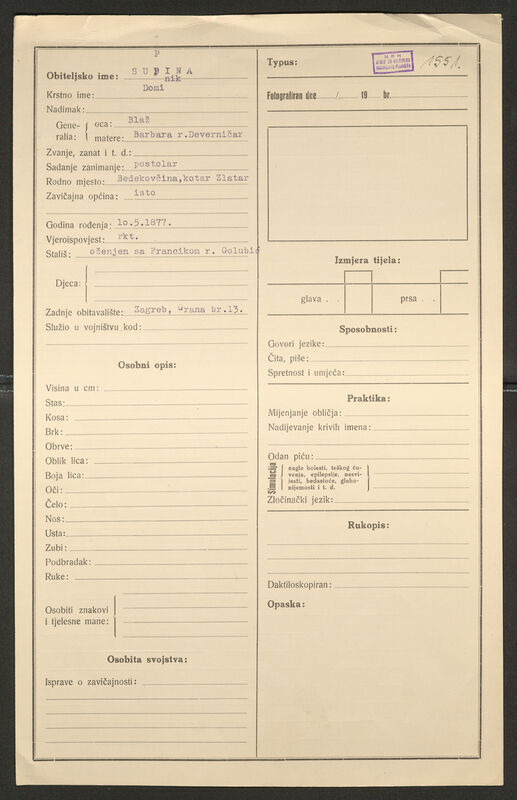 P
Obiteljsko ime: SUPINA
nik
Krstno ime: Domi
Nadimak:
Gene-
ralia:
oca: Blaž
matere: Barbara r.Deverničar
Zvanje, zanat i t. d.:
Sadanje zanimanje: postolar
Rodno mjesto: Bedekovčina,kotar Zlatar
Zavičajna općina: isto
Godina rođenja: lo.5.1877.
Vjeroispovjest: rkt.
Stališ: oženjen sa Francikom r. Golubić
Djeca:
Zadnje obitavalište: Zagreb, Grana br.13.
Služio u vojništvu kod:
Osobni opis:
Visina u cm:
Stas:
Kosa:
Brk:
Obrve:
Oblik lica:
Boja lica:
Oči:
Čelo:
Nos:
Usta:
Zubi:
Podbradak:
Ruke:
Osobiti znakovi
i tjelesne mane:
Osobita svojstva:
Isprave o zavičajnosti:
Typus:
1551.
Fotografiran dne / 19 br.
Izmjera tijela:
glava . . prsa . .
Sposobnosti:
Govori jezike:
Čita, piše:
Spretnost i umjeća:
Praktika:
Mijenjanje obličja:
Nadijevanje krivih imena:
Odan piću:
Simulacija
nagle bolesti, teškog ću-
venja, epilepsije, nesvi-
jesti, bedastoće, gluho-
nijemosti i t. d.
Zločinački jezik:
Rukopis:
Daktiloskopiran:
Opaska: